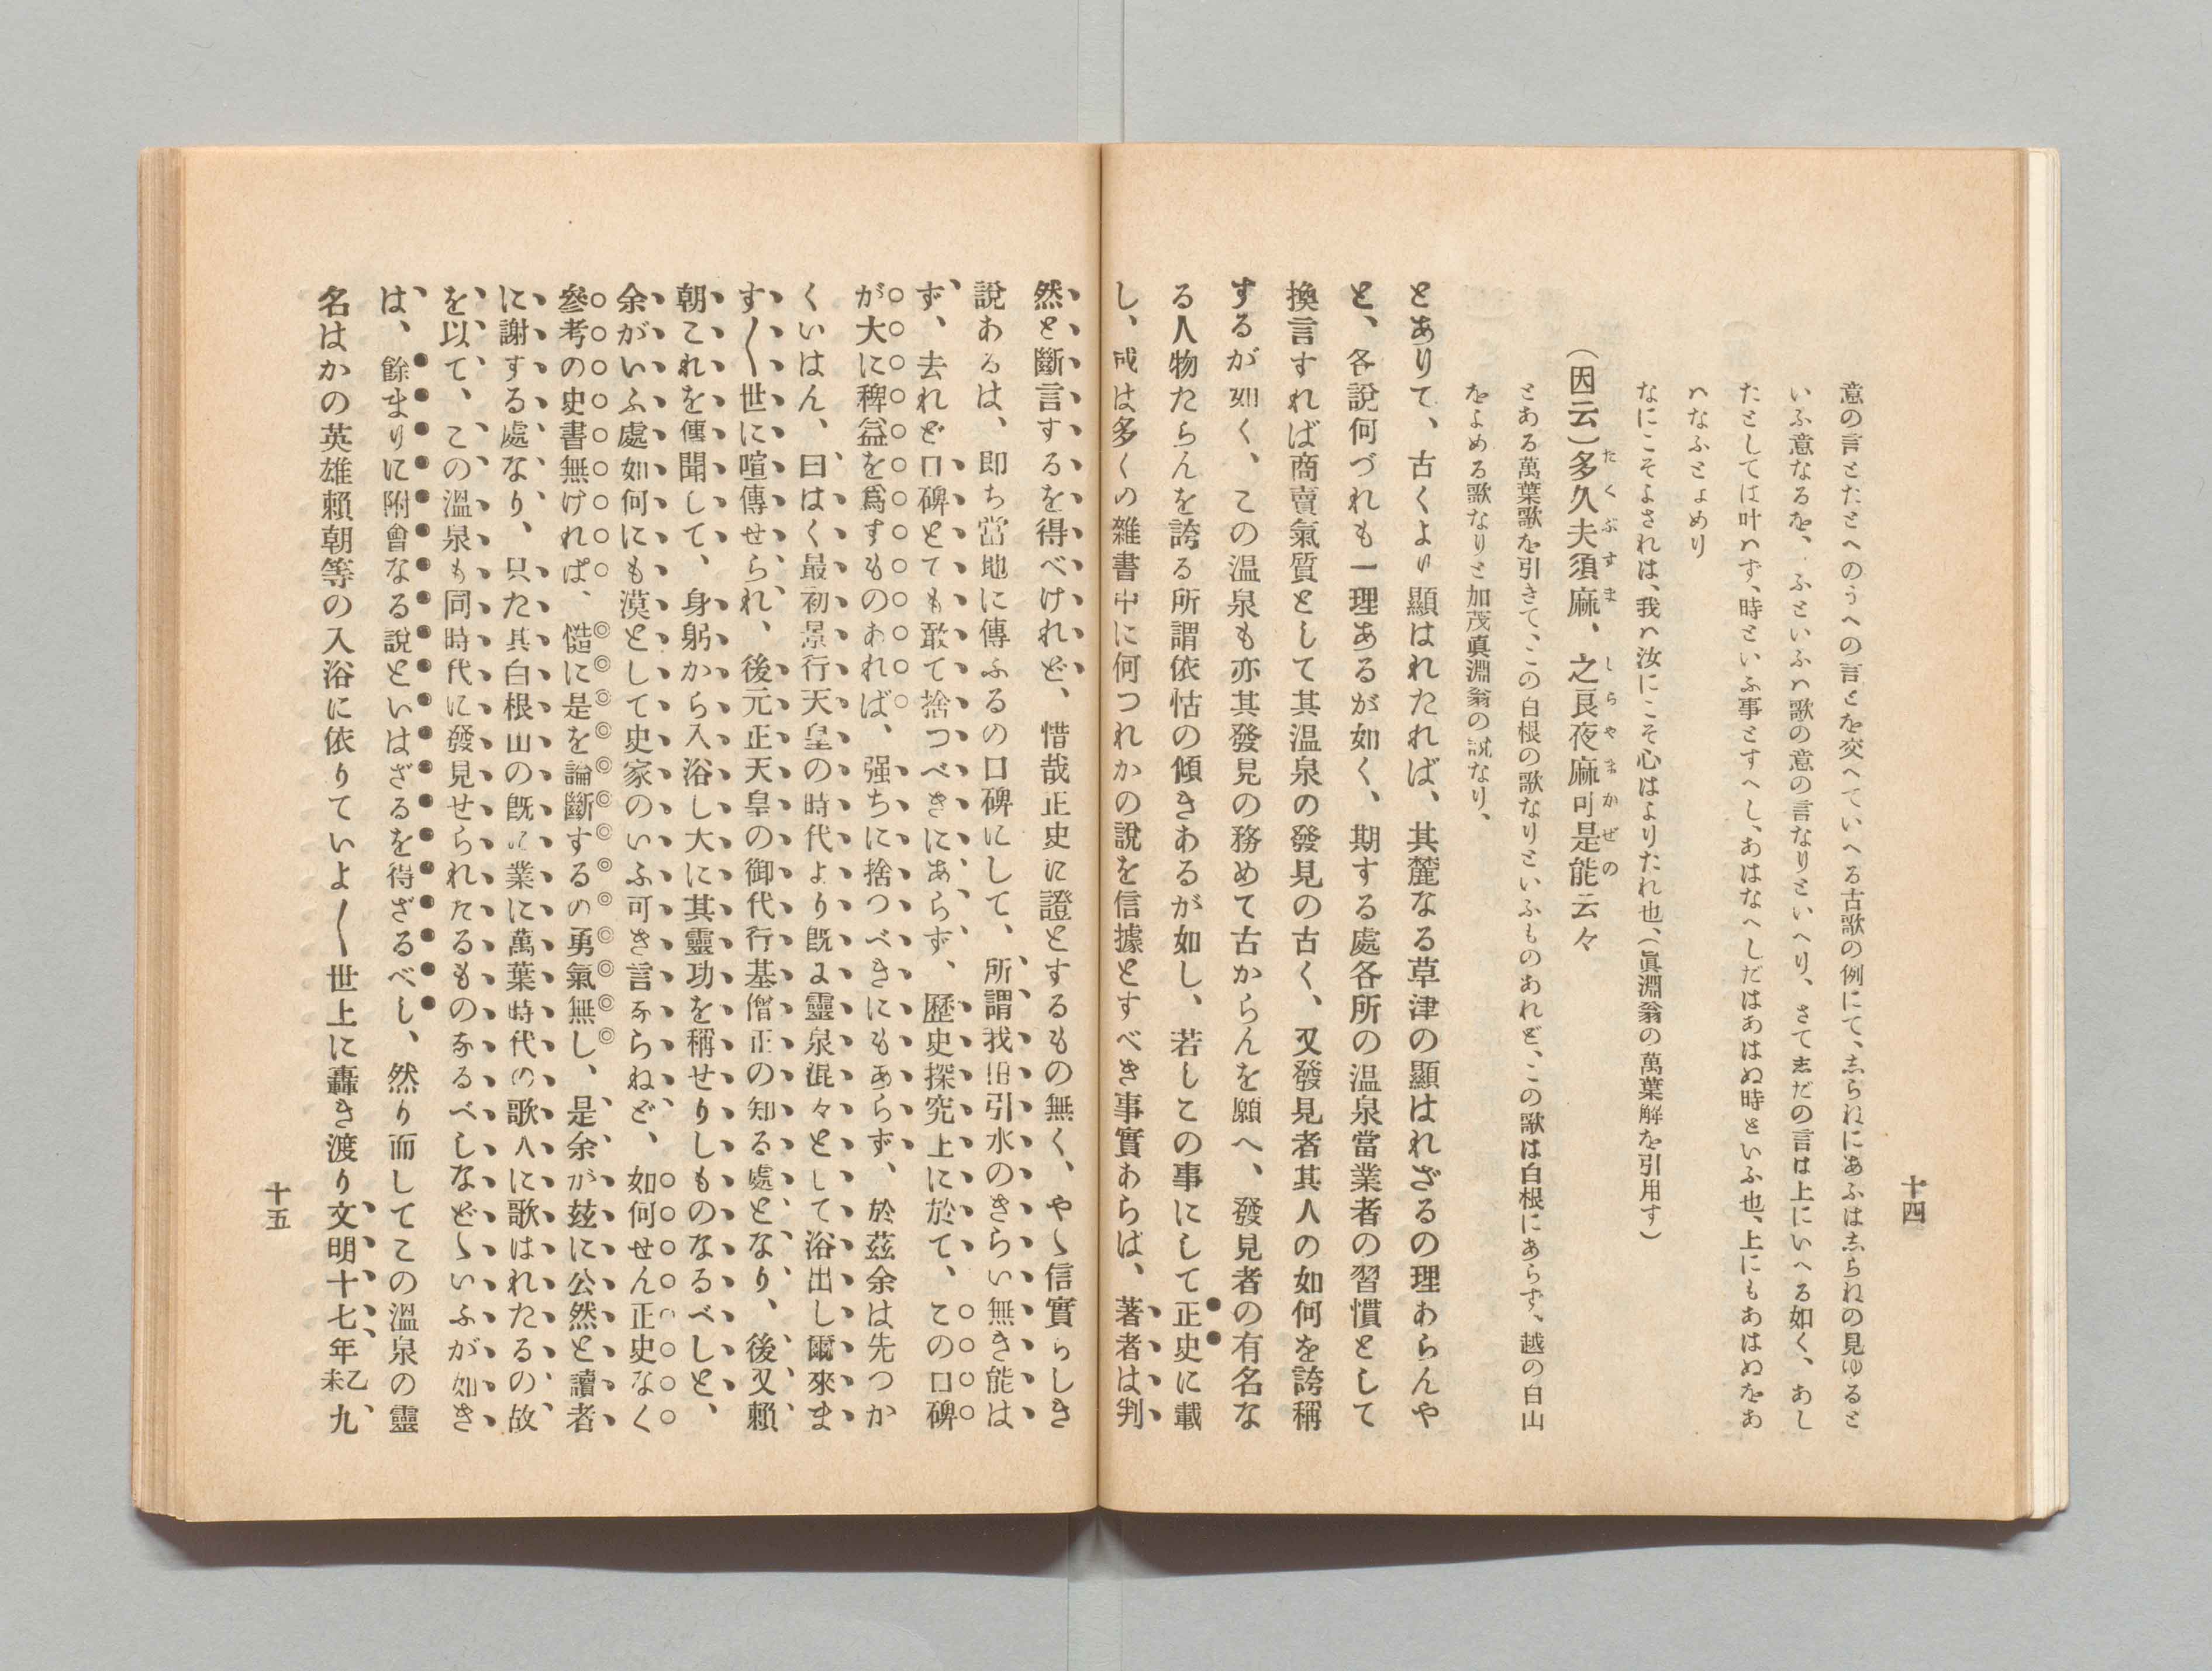 十四
意の言とたとへのうへの言とを交へていへる古歌の例にて、志らねにあふは志らねの見ゆると
いふ意なるを、ふといふハ歌の意の言なりといへり、さて志だの言は上にいへる如く、あし
たとしては叶ハず、時といふ事とすへし、あはなへしだはあはぬ時といふ也、上にもあはぬをあ
ハなふとよめり
なにこそよされは、我ハ汝にこそ心はよりたれ也、(眞淵翁の萬葉解を引用す)
(因云)多久夫須麻、之良夜麻可是能云々
たくぶすま しらやまかぜの
とある萬葉歌を引きて、この白根の歌なりといふものあれど、この歌は白根にあらず、越の白山
をよめる歌なりと加茂眞淵翁の說なり、
とありて、古くより顯はれたれば、其麓なる草津の顯はれざるの理あらんや
と、各說何づれも一理あるが如く、期する處各所の温泉當業者の習慣として
換言すれば商賣氣質として其温泉の發見の古く、又發見者其人の如何を誇稱
するが如く、この温泉も亦其發見の務めて古からんを願へ、發見者の有名な
る人物たらんを誇る所謂依怙の傾きあるが如し、若しこの事にして正史に載
し、或は多くの雜書中に何つれかの說を信據とすべき事實あらば、著者は判
然と斷言するを得べけれど、惜哉正史に證とするもの無く、やゝ信實らしき
說あるは、即ち當地に傳ふるの口碑にして、所謂我旧引水のきらい無き能は
ず、去れど口碑とても敢て捨つべきにあらず、歷史探究上に於て、この口碑
が大に稗益を爲すものあれば、强ちに捨つべきにもあらず、於茲余は先つか
くいはん、曰はく最初景行天皇の時代より既に靈泉混々として浴出し爾來ま
す〱世に喧傳せられ、後元正天皇の御代行基僧正の知る處となり、後又賴
朝これを傳聞して、身躬から入浴し大に其靈功を稱せりしものなるべしと、
余がいふ處如何にも漠として史家のいふ可き言ならねど、如何せん正史なく
參考の史書無ければ、慥に是を論斷するの勇氣無し、是余が玆に公然と讀者
に謝する處なり、只た其白根山の既に業に萬葉時代の歌人に歌はれたるの故
を以て、この溫泉も同時代に發見せられたるものなるべしなどゝいふが如き
は、餘まりに附會なる說といはざるを得ざるべし、然り而してこの溫泉の靈
名はかの英雄賴朝等の入浴に依りていよ〱世上に轟き渡り文明十七年乙未九
十五